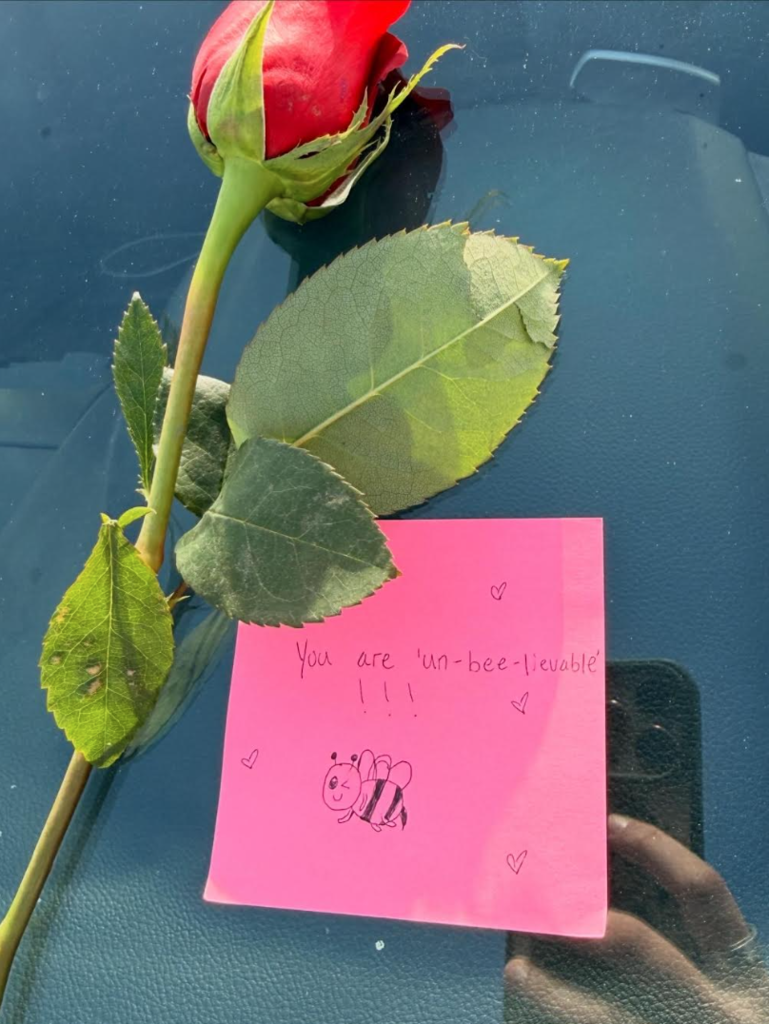 You are 'un-bee-lievable'
!!!